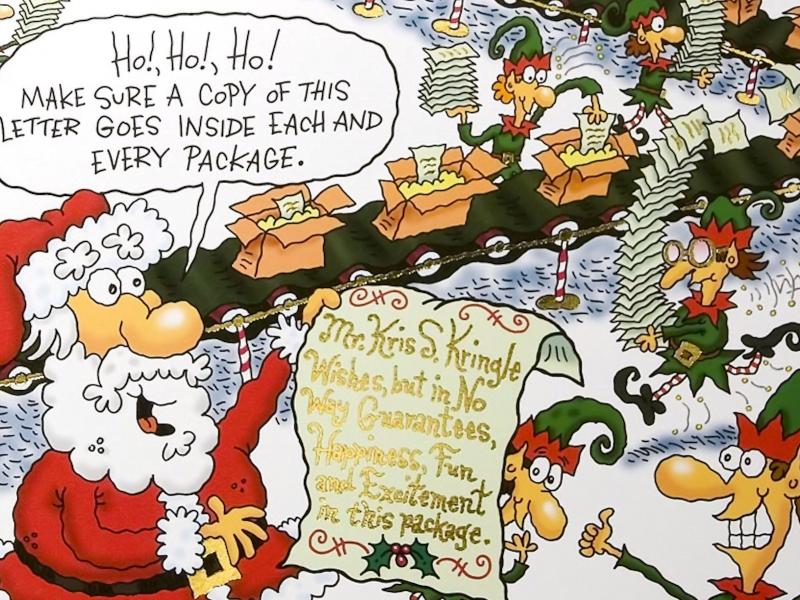 Ho!, Ho!, Ho!
MAKE SURE A COPY OF THIS
LETTER GOES INSIDE EACH AND
EVERY PACKAGE.
Mr. Kris S. Kringle
Wishes, but in No
Way Guarantees,
Happiness, Fun
and Excitement
in this package.